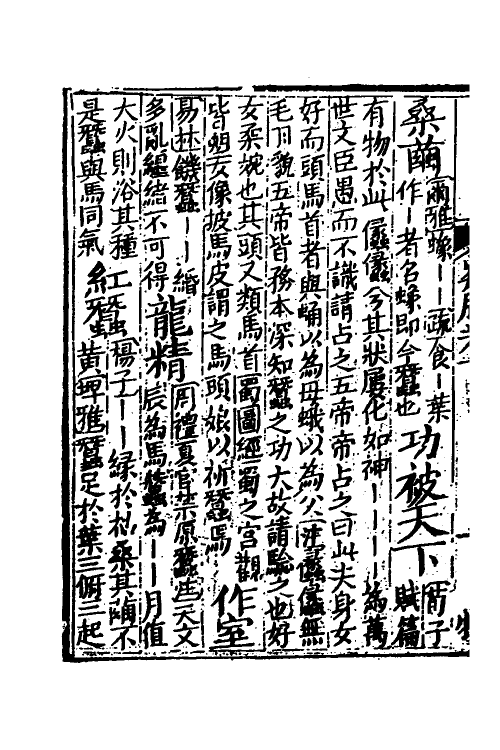 桑繭
爾雅蟓——疏食—葉
作—者名蟓即今蠶也
功被天下
荀子
賦篇
有物於此㒩㒩兮其狀屢化如神————為萬
世文臣愚而不識請占之五帝帝占之曰此夫身女
好而頭馬首者與蛹以為母蛾以為父注㒩㒩無
毛羽貌五帝皆務本深知蠶之功大故請驗之也好
女柔婉也其頭又類馬首蜀圖經蜀之宮觀
皆塑女像披馬皮謂之馬頭娘以祈蠶焉
作室
易林饑蠶——緍
多亂纏緒不可得
龍精
周禮夏官禁原蠶注天文
辰為馬蠶為——月值
大火則浴其種
是蠶與馬同氣
紅蠶
楊子——緣於枯桑其繭不
黃埤雅蠶足於葉三俯三起